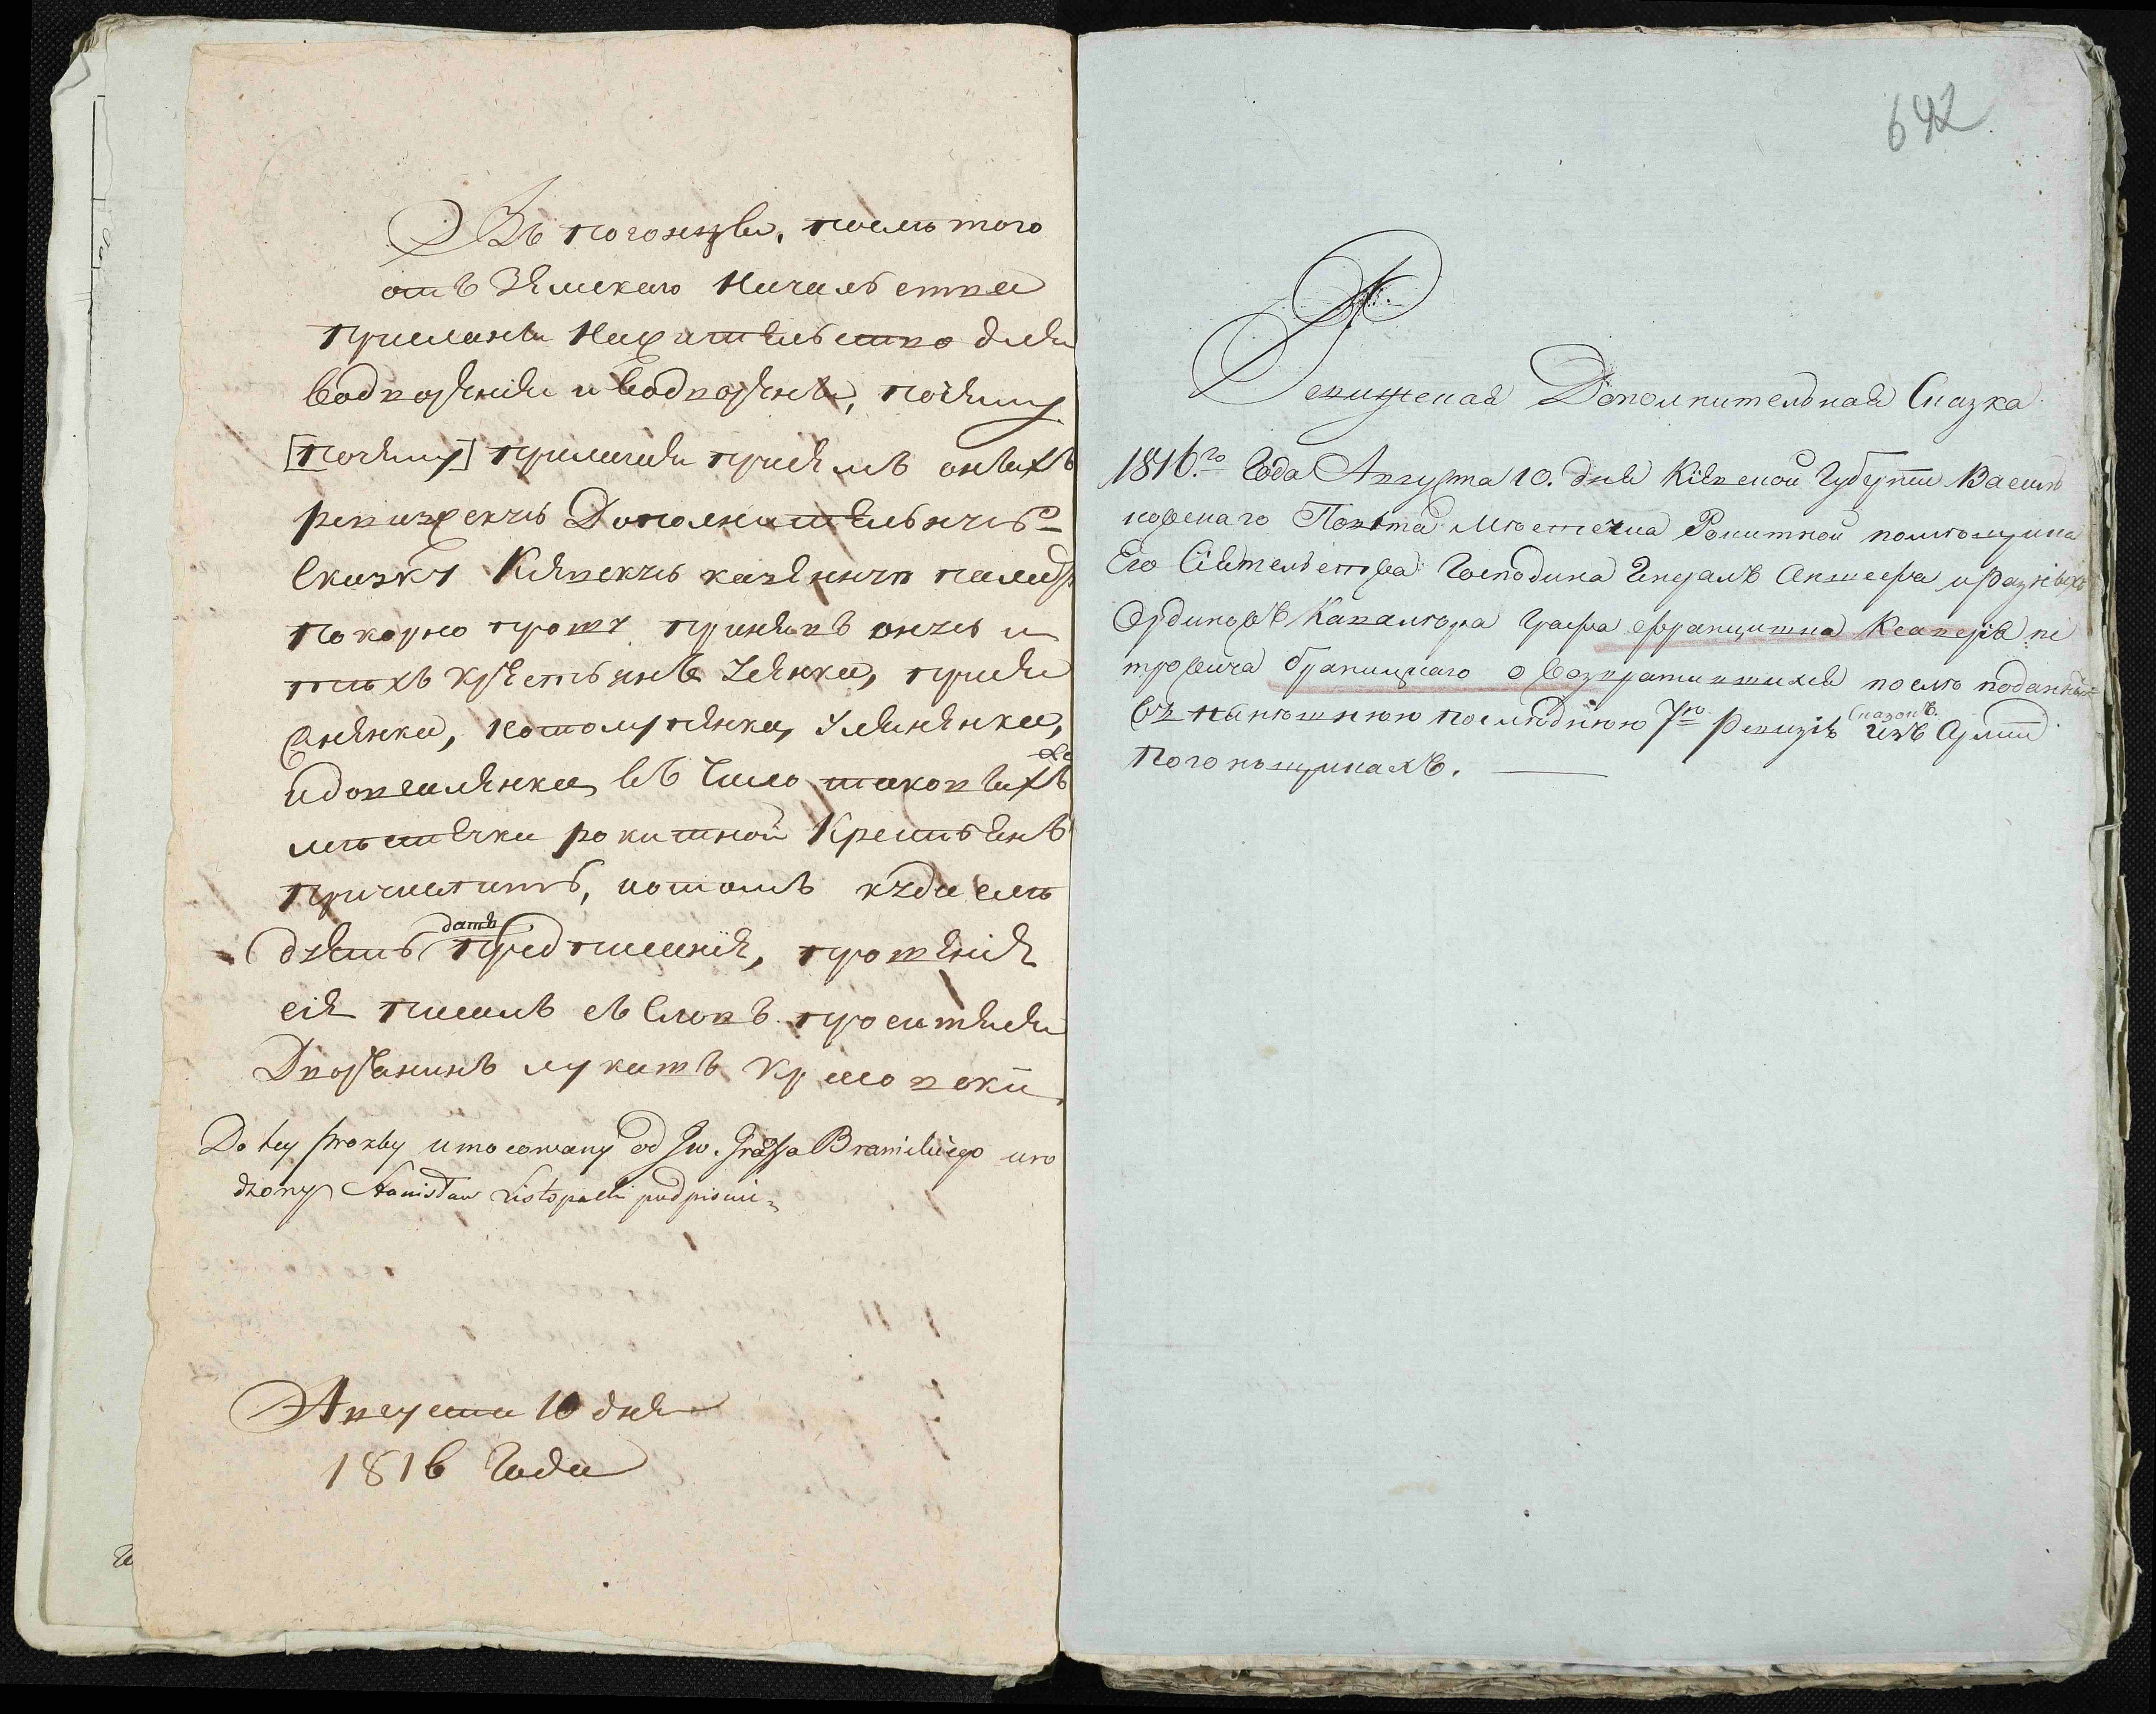 Въ погонщы, послѣ того
отъ Земскаго Начальства
присланы на жительство для
водворения и водворены, почему
[почему] прилагая при семъ оныхъ
ревизскую Дополнительную
сказку Киевскую казенную палату
покорно прошу принявъ оную и
тѣхъ крестьянъ
и въ число таковыхъ же
мѣстечка рокитной Крестьянъ
причислить, и о томъ куда слѣ
дуетъ дать предписание, прошение
сие писалъ съ словъ просителя
Дворянинъ лукашъ
Do tey prozby umocowany od Jw. Graffa Branickiego uro
dzony Stanisław Listopacki podpisuie
Августа 10 дня
1816 Года
642
Ревижская Дополнительная Сказка
1816.го Года Августа 10. дня Кіевской Губерніи Василь
ковскаго Повѣта Мѣстечка Рокитной помѣщика
Его Сіятельства Господина Генералъ Аншефа и разныхъ
Ординовъ Кавалѣра Графа Францишка Ксаверія пе
тровича браницкаго о возвратившихся послѣ поданныхъ
въ нынѣшнюю послѣднюю 7ю ревизію Сказокъ. изъ Арміи
Погонщикахъ.